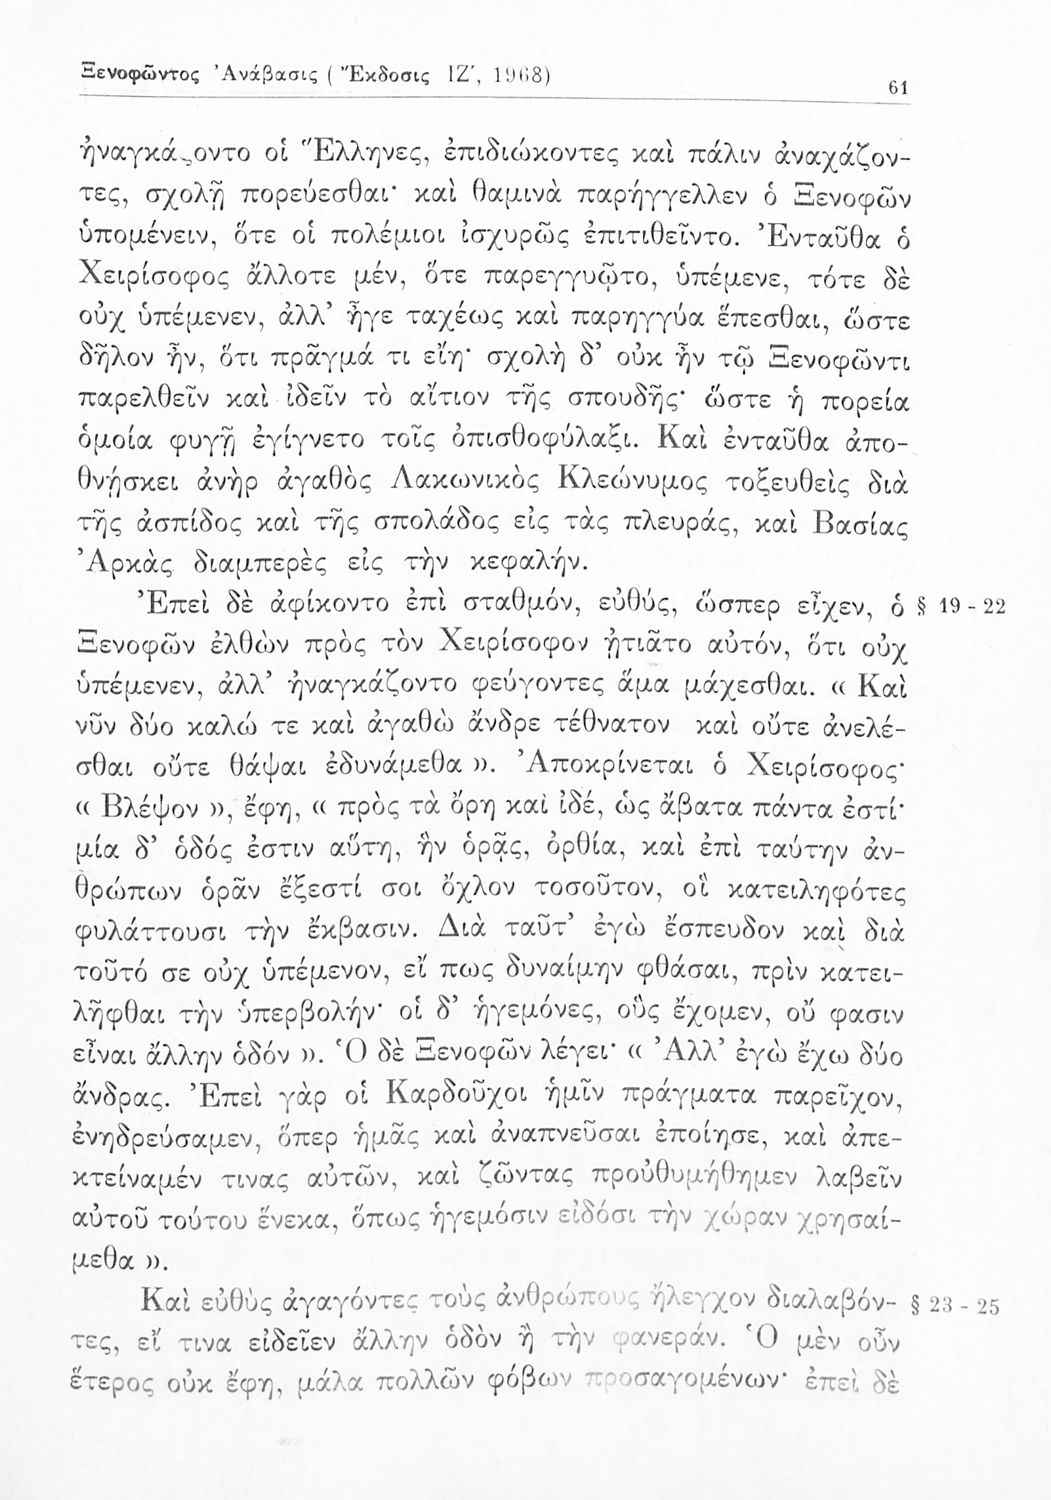 Ξενοφῶντος Ἀνάβασις ( Ἔκδοσις ΙΖ΄, 1968)
61
ἠναγκάζοντο οἱ Ἕλληνες, ἐπιδιώκοντες καὶ πάλιν ἀναχάζον-
τες, σχολῇ πορεύεσθαι· καὶ θαμινὰ παρήγγελλεν ὁ Ξενοφῶν
ὑπομένειν, ὅτε οἱ πολέμιοι ἰσχυρῶς ἐπιτιθεῖντο. Ἐνταῦθα ὁ
Χειρίσοφος ἄλλοτε μέν, ὅτε παρεγγυῷτο, ὑπέμενε, τότε δὲ
οὐχ ὑπέμενεν, ἀλλ’ ἦγε ταχέως καὶ παρηγγύα ἕπεσθαι, ὥστε
δῆλον ἦν, ὅτι πρᾶγμά τι εἴη· σχολὴ δ’ οὐκ ἦν τῷ Ξενοφῶντι
παρελθεῖν καὶ ἰδεῖν τὸ αἴτιον τῆς σπουδῆς· ὥστε ἡ πορεία
ὁμοία φυγῇ ἐγίγνετο τοῖς ὀπισθοφύλαξι. Καὶ ἐνταῦθα ἀπο-
θνῄσκει ἀνὴρ ἀγαθὸς Λακωνικὸς Κλεώνυμος τοξευθεὶς διὰ
τῆς ἀσπίδος καὶ τῆς σπολάδος εἰς τὰς πλευράς, καὶ Βασίας
Ἀρκὰς διαμπερὲς εἰς τὴν κεφαλήν.
Ἐπεὶ δὲ ἀφίκοντο ἐπὶ σταθμόν, εὐθύς, ὥσπερ εἶχεν, ὁ § 19 - 22
Ξενοφῶν ἐλθὼν πρὸς τὸν Χειρίσοφον ᾐτιᾶτο αὐτόν, ὅτι οὐχ
ὑπέμενεν, ἀλλ’ ἠναγκάζοντο φεύγοντες ἅμα μάχεσθαι. « Καὶ
νῦν δύο καλώ τε καὶ ἀγαθὼ ἄνδρε τέθνατον καὶ οὔτε ἀνελέ-
σθαι οὔτε θάψαι ἐδυνάμεθα ». Ἀποκρίνεται ὁ Χειρίσοφος·
« Βλέψον », ἔφη, « πρὸς τὰ ὄρη καὶ ἰδέ, ὡς ἄβατα πάντα ἐστί·
μία δ’ ὁδός ἐστιν αὕτη, ἣν ὁρᾷς, ὀρθία, καὶ ἐπὶ ταύτην ἀν-
θρώπων ὁρᾶν ἔξεστί σοι ὄχλον τοσοῦτον, οἳ κατειληφότες
φυλάττουσι τὴν ἔκβασιν. Διὰ ταῦτ’ ἐγὼ ἔσπευδον καὶ διὰ
τοῦτό σε οὐχ ὑπέμενον, εἴ πως δυναίμην φθάσαι, πρὶν κατει-
λῆφθαι τὴν ὑπερβολήν· οἱ δ’ ἡγεμόνες, οὓς ἔχομεν, οὔ φασιν
εἶναι ἄλλην ὁδόν ». Ὁ δὲ Ξενοφῶν λέγει· « Ἀλλ’ ἐγὼ ἔχω δύο
ἄνδρας. Ἐπεὶ γὰρ οἱ Καρδοῦχοι ἡμῖν πράγματα παρεῖχον,
ἐνηδρεύσαμεν, ὅπερ ἡμᾶς καὶ ἀναπνεῦσαι ἐποίησε, καὶ ἀπε-
κτείναμέν τινας αὐτῶν, καὶ ζῶντας προὐθυμήθημεν λαβεῖν
αὐτοῦ τούτου ἕνεκα, ὅπως ἡγεμόσιν εἰδόσι τὴν χώραν χρησαί-
μεθα ».
Καὶ εὐθὺς ἀγαγόντες τοὺς ἀνθρώπους ἤλεγχον διαλαβόν- § 23 - 25
τες, εἴ τινα εἰδεῖεν ἄλλην ὁδὸν ἢ τὴν φανεράν. Ὁ μὲν οὖν
ἕτερος οὐκ ἔφη, μάλα πολλῶν φόβων προσαγομένων· ἐπεὶ δὲ